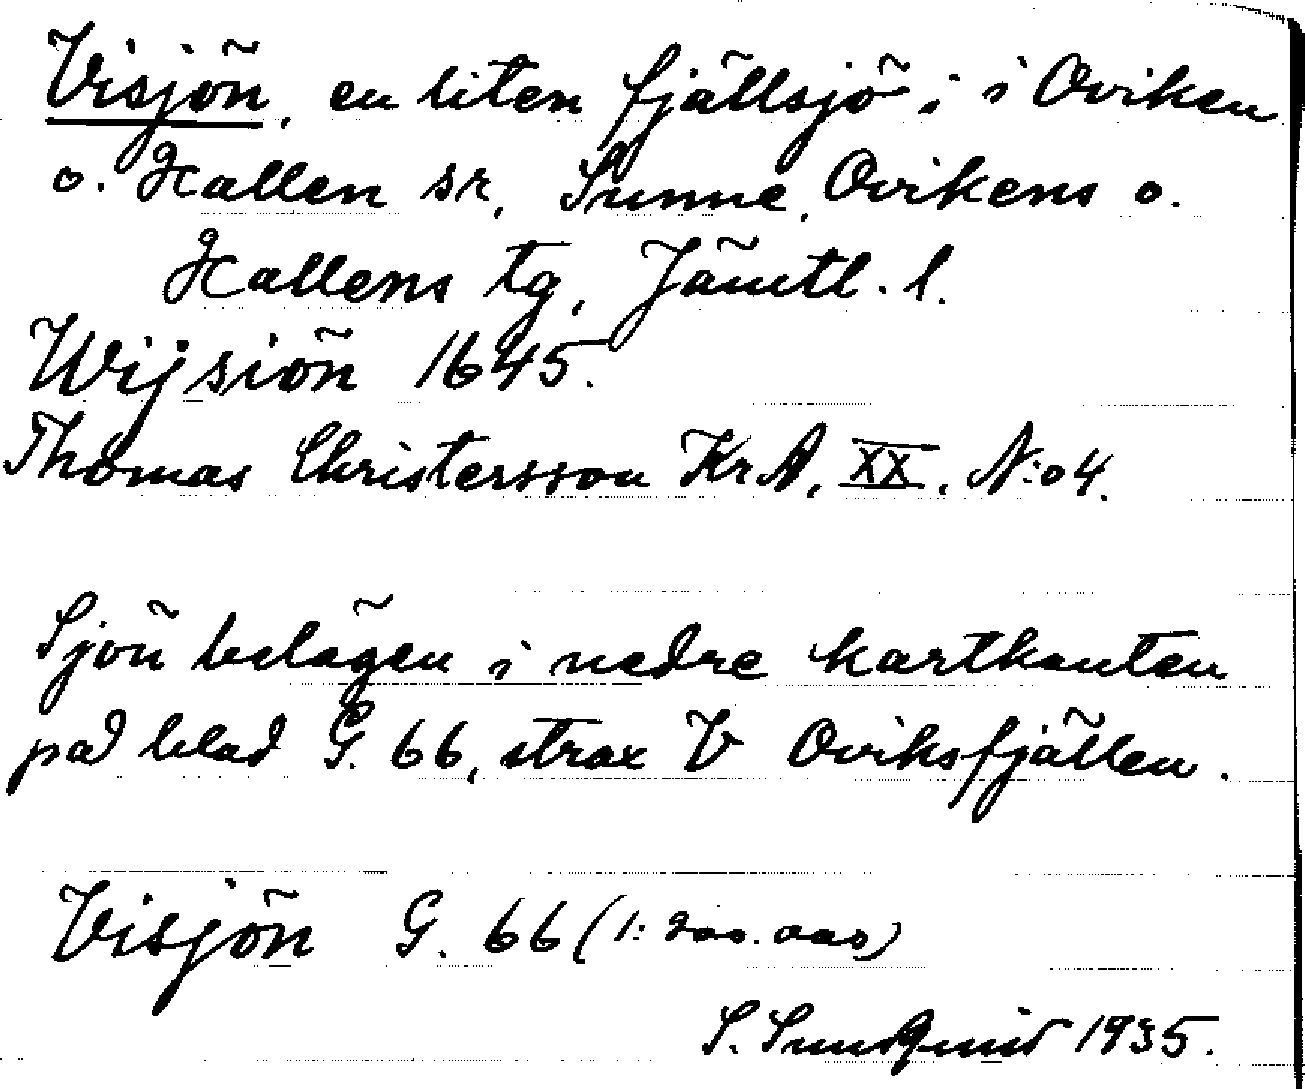 Visjön, en liten fjällsjö i i Oviken
o. Hallen sr, Sunne, Ovikens o.
Hallens tg, Jämtl. l.
Wijsiön 1645.
Thomas Christersson KrA, XX, N:o 4.
Sjön belägen i nedre kartkanten
på blad G. 66, strax V Oviksfjällen.
Visjön G. 66 (1:200.000)
S. Sundquist 1935.